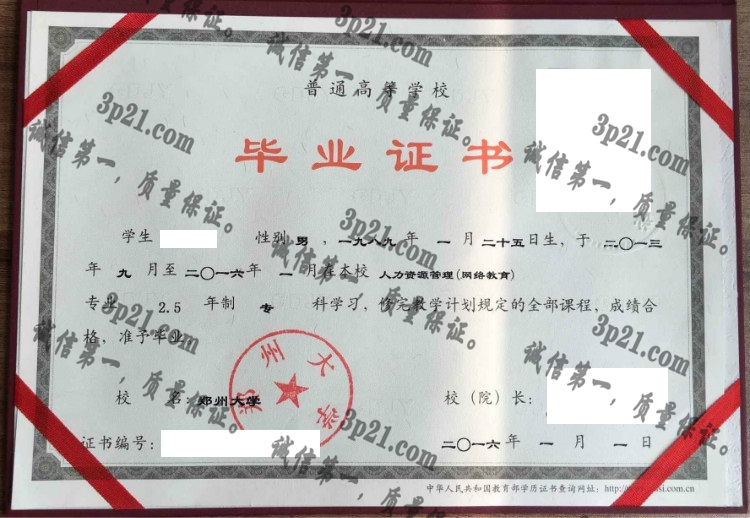 普通高等学校
毕业证书
学生 性别 男 ,一九八九年 一 月 二十五日生,于 二〇一三
年 九 月至 二〇一六年 一 月在本校 人力资源管理(网络教育)
专业 2.5 年制 专 科学习,修完教学计划规定的全部课程,成绩合
格,准予毕业。
郑州大学
校 名:郑州大学 校(院)长:
证书编号: 二〇一六年 一 月 一 日
中华人民共和国教育部学历证书查询网址:http://
si.com.cn
3p21.com
诚信第一,质量保证。
3p21.com
诚信第一,质量保证。
3p21.com
诚信第一,质量保证。
3p21.com
诚信第一,质量保证。
3p21.com
诚信第一,质量保证。
3p21.com
诚信第一,质量保证。
3p21.com
诚信第一,质量保证。
3p21.com
诚信第一,质量保证。